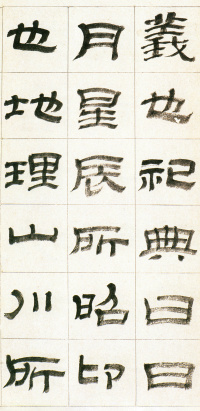 義也祀典曰日
月星辰所昭卬
也地理山川所